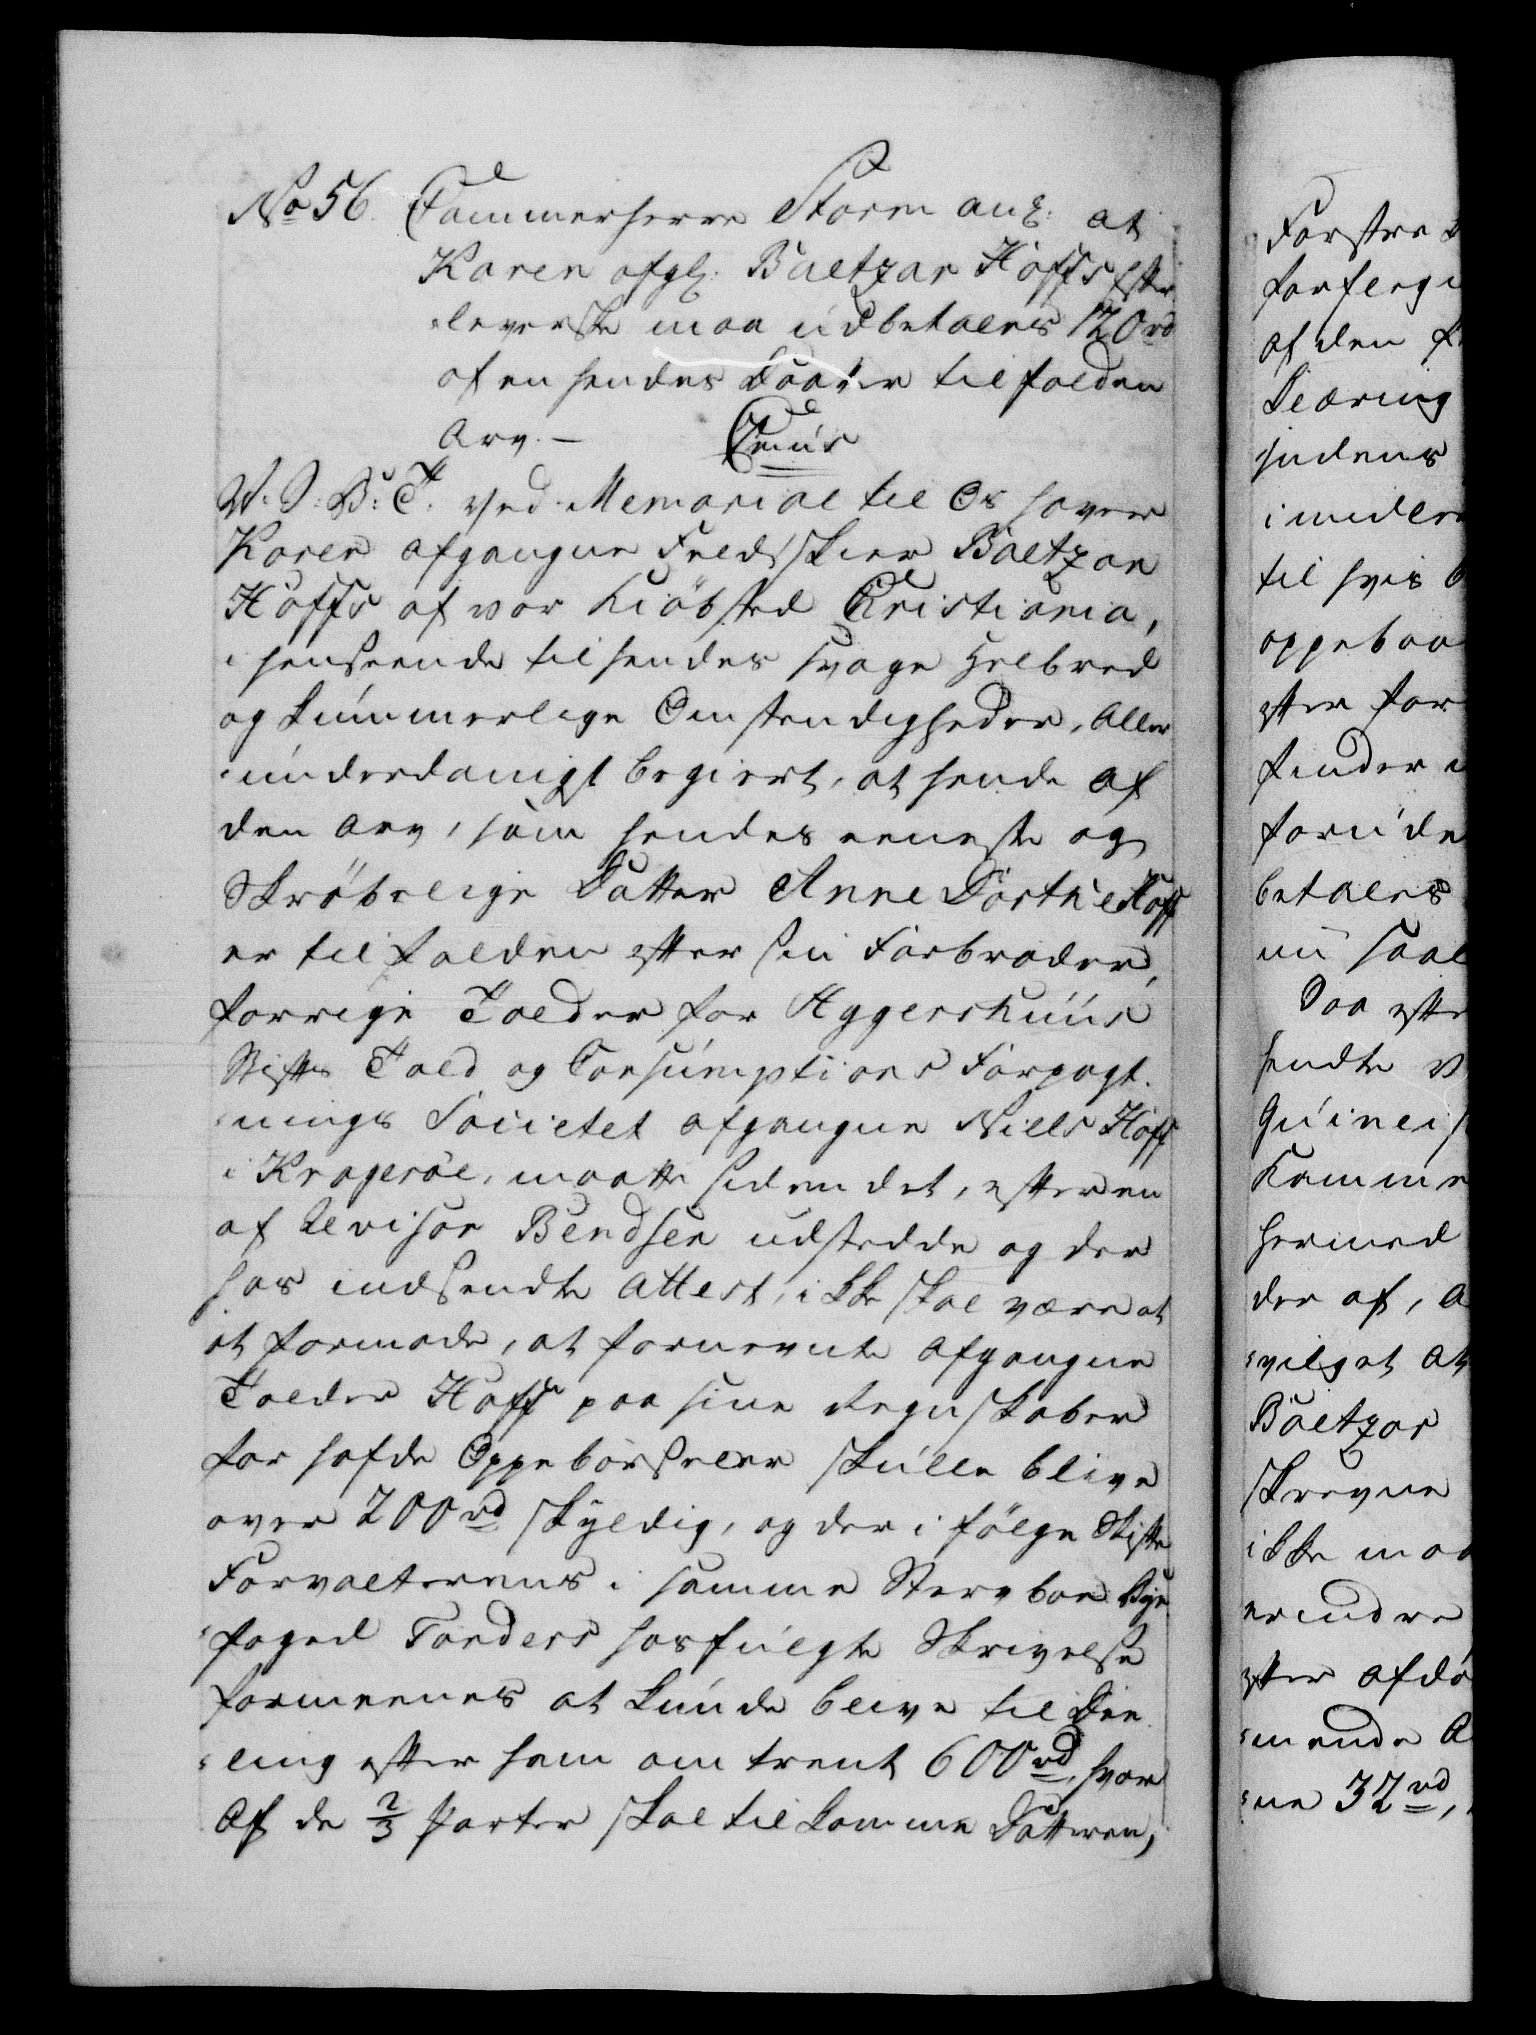 No 56. Cammerherre Storm ang: at
Karen afgl: Baltzar Hoffs Efter
leverske maa udbetales 120 rd
af en hendes Datter tilfalden
Arv. — Cuus
W. G. B: T: Ved Memorial til Os haver
Karen afgangne Feldskier Baltzar
Hoffs af vor Kiöbsted Christiania,
i henseende til hendes svage Helbred
og kummerlige Omstendigheder, Aller
underdanigst begiert, at hende af
den Arv, som hendes eeneste og
Skröbelige Datter Anne Dorthe Hoff
er tilfalden efter sin Farbroder,
forrige Tolder for Aggershuus
Stifts Told og Consumptions Forpagt
nings Societet afgangne Niels Hoff
i Krageröe, maatte siden det, efter en
af Revisor Bendsen udstedde og der
hos indsendte Attest, ikke skal være at
at formode, at fornevnte Afgangne
Tolder Hoff paa sine Regnskaber
for hafde Oppebörseler skulle blive
over 200 rd skyldig, og der i fölge Skifte
Forvalterens i samme Sterboe Bye
foged Tonders hosfulgte Skrivelse
formeenes at kunde blive til Dee
ling efter ham omtrent 600 rd, hvor
Af de 2/3 Parter skal tilkomme Datteren,
Forstre
forfleg
af den
Læring
hendens
imidler
til hvis
oppebaa
efter for
finder
foruden
betales
nu saal
Saa efte
sendte
Guineis
Kamme
hermed
der af, A
vilget At
Baltzar
skrevne
ikke maa
erindre
efter afdö
mende A
ne 32 rd,